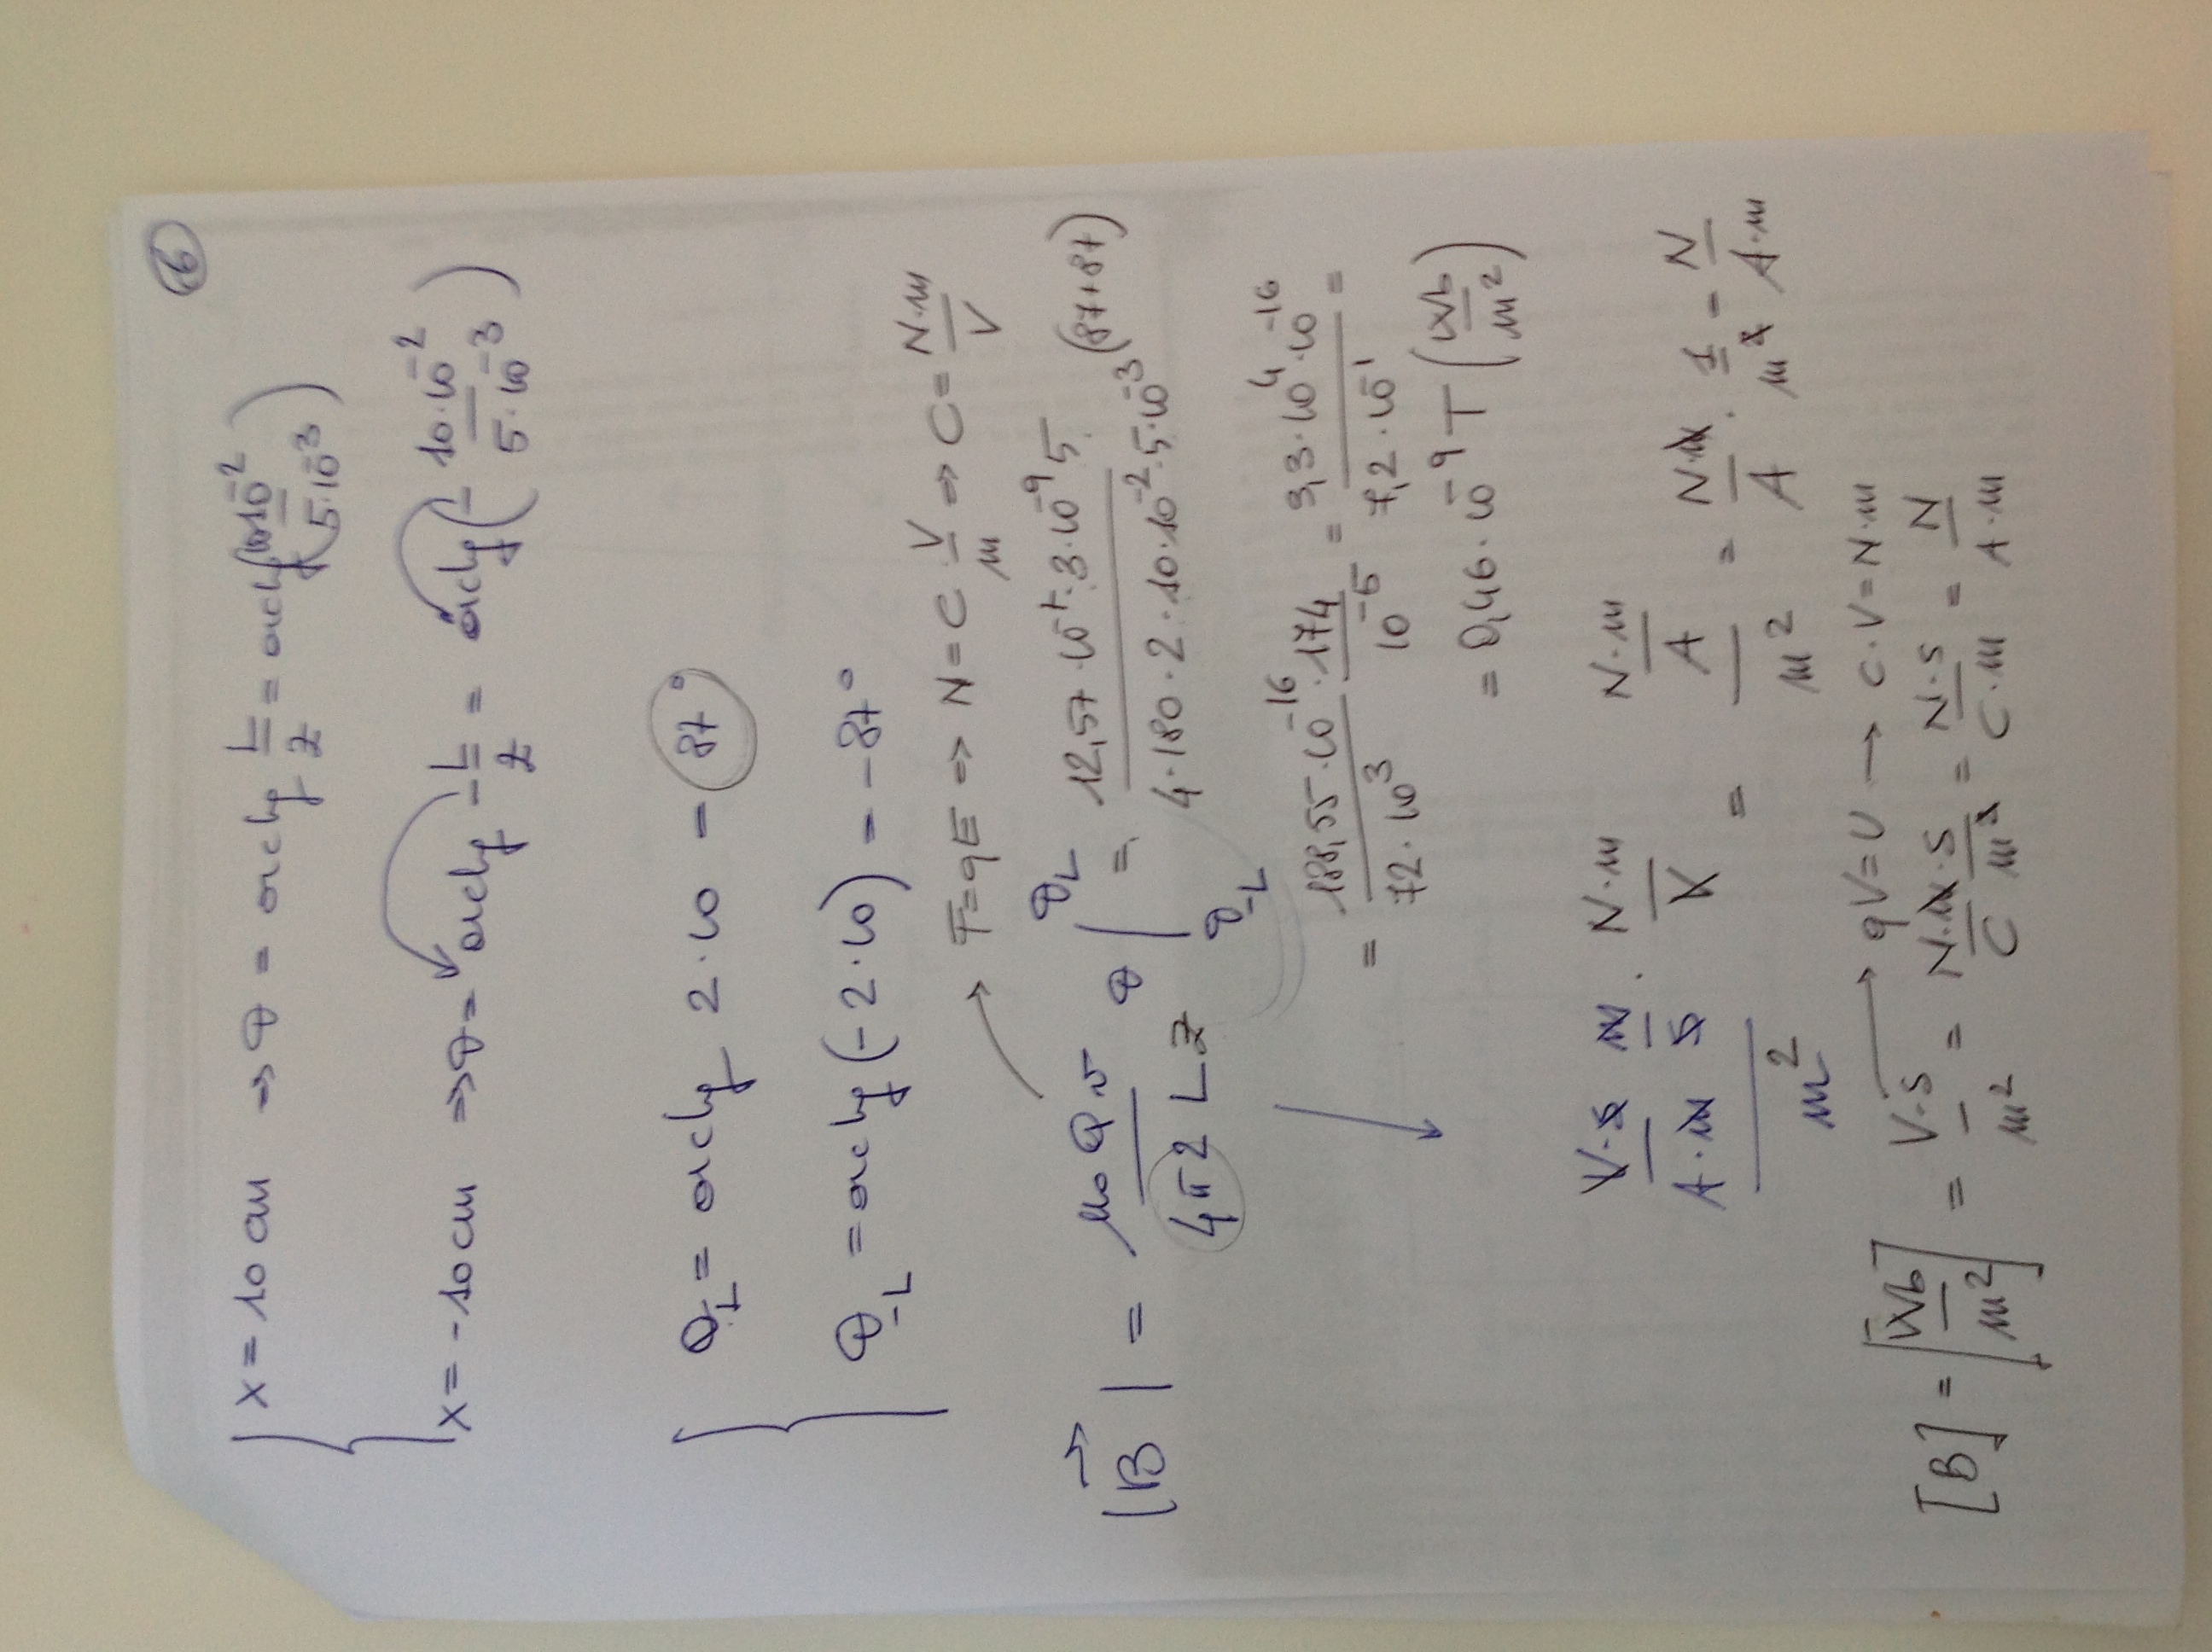 6
x = 10 cm ⇒ θ = arctg L/z = arctg(10·10⁻²/5·10⁻³)
x = -10 cm ⇒ θ = arctg -L/z = arctg(- 10·10⁻²/5·10⁻³)
θ_L = arctg 2·10 = 87°
θ_-L = arctg(-2·10) = -87°
F=qE ⇒ N = C V/m ⇒ C = N·m/V
|B⃗| = μ₀Qv/4π2Lz θ |_θ_-L^θ_L = 12,57·10⁻⁷·3·10⁻⁹ 5/4·180·2·10·10⁻²·5·10⁻³ (87+87)
= 188,55·10⁻¹⁶/72·10³ · 174/10⁻⁵ = 3,3·10⁴·10⁻¹⁶/7,2·10⁻¹ =
= 0,46·10⁻⁹ T (Wb/m²)
(V·s/A·m m/s · N·m/V)/m² = (N·m/A)/m² = N·m/A · 1/m² = N/A·m
qV=U → C·V=N·m
[B] = [Wb/m²] = V·s/m² = N·m/C s/m² = N·s/C·m = N/A·m